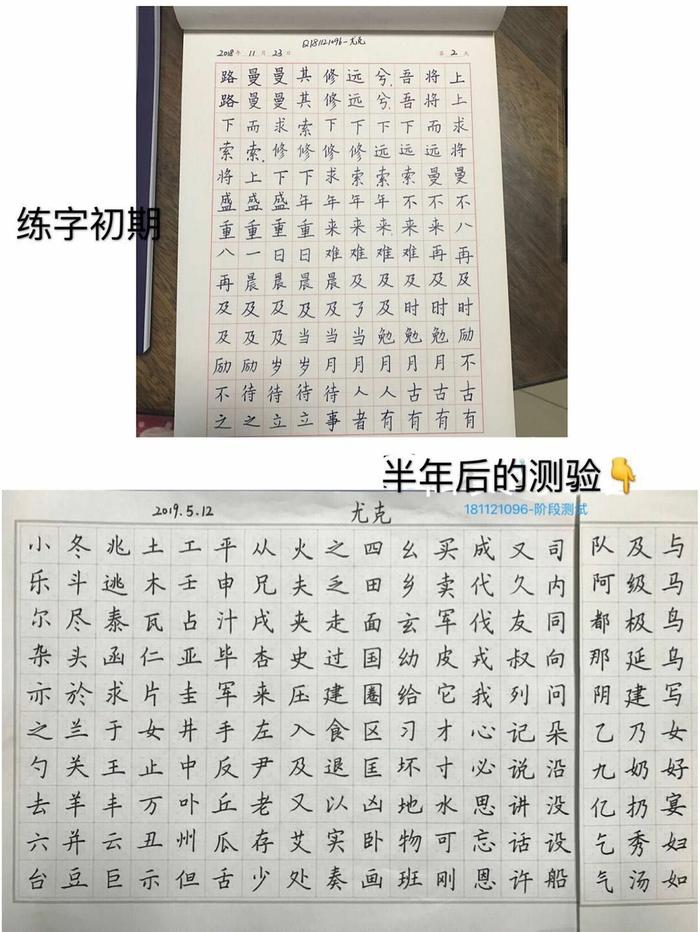 Q181121096-尤克
2018年 11月 23日 第 2 天
路曼曼其修远兮吾将上
路曼曼其修远兮吾将上
下而求索下下下下而求
索索修修修修远远远将
将上下下求索索索曼曼
盛盛盛年年年年不不不
重重重重来来来来来八
八一日日难难难难再再
再晨晨晨晨及及及及及
及及及及及了及时时时
及及及当当当勉勉勉励
励励岁岁月月月月月不
不待待待待人人古古古
之之立立事者有有有有
练字初期
半年后的测验👇
181121096-阶段测试
2019.5.12 尤克
小冬兆土工平从火之四幺买成又司 队及与
乐斗逃木壬申兄夫乏田乡卖代久内 阿级马
尔尽泰瓦占汁戌夹走面玄军伐友同 都极鸟
杂头函仁亚毕杏史过国幼皮戎叔向 那延乌
亦於求片圭军来压建圈给它我列问 阴建写
之兰于女井手左入食区习才心记朵 乙乃女
勺关王止中反尹及退匡坏寸必说沿 九奶好
去羊丰万卟丘老又以凶地水思讲没 亿扔宴
六并云丑州瓜存艾实卧物可忘话设 乞秀妇
台豆巨示但舌少处奏画班刚恩许船 气汤如